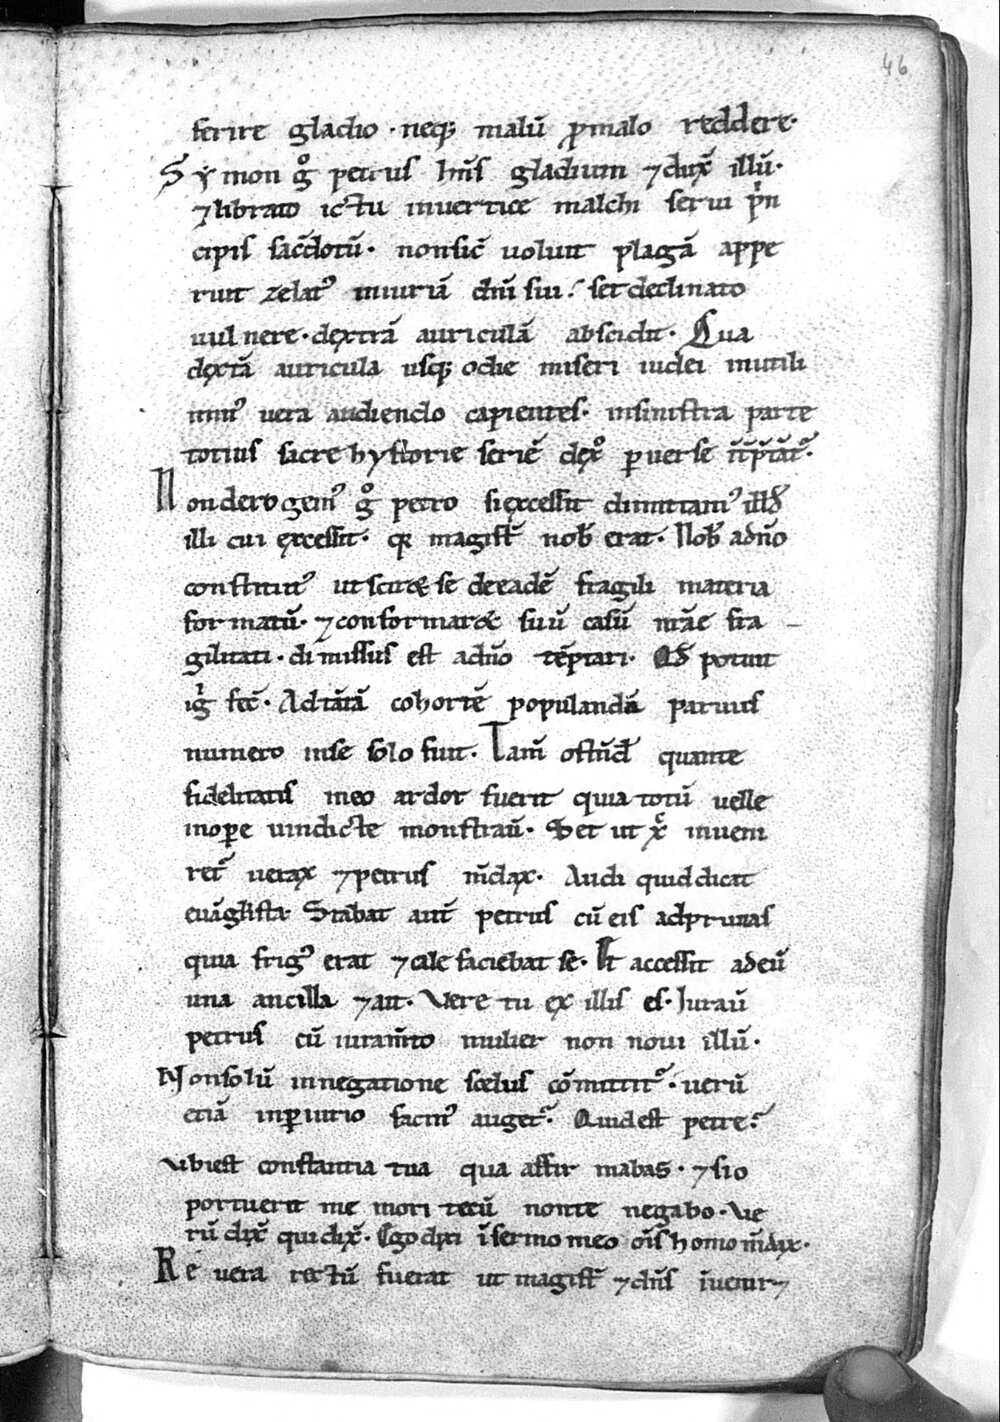 46
ferire gladio · neq; malū ꝓ malo reddere·
Symon gͦ petrus hn̄s gladium ⁊ dux̄ illū·
⁊ librato ictu inuertice malchi serui pⁱn
cipis sac̄dotū· non sic̄ uoluit plagā appe
riit zelat᷒ iniuriā dn̄i sui· set declinato
uulnere· dęxtrā auriculā abscidit· Qua
dęxtā auricula usq; odie miseri iudei mutili
nimꝰ uera audiendo capientes· insinistra parte
totius sacre hystorie seriē dęxͦ ꝑuerse
Non derogemꝰ gͦ petro si ęxcessit dimittamꝰ illđ
illi cui ęxcessit· qꝛ magist̄ nob̄ erat· Nob̄ adn̄o
constituitꝰ ut scir& se de eadē fragili materia
formatū· ⁊ conformar& suū casū nr̄ae fra
gilitati· dimissus est adn̄o tēptari· Qđ potuit
igⁱ fec̄· Ad tātā cohortē populandā paruus
numero inse solo fuit· Tam̄ ostn̄d̄ quante
fidelitatis meo ardor fuerit quia totū uelle
inope uindicte monstrau̅· Set ut xc̄ inueni
ret̄ uerax ⁊ petrus m̄dax· Audi quid dicat
euāglista· Stabat aut̄ petrus cū eis ad prunas
quia frigꝰ erat ⁊ cale faciebat se· Et accessit ad eū
una ancilla ⁊ ait· Vere tu ex illis es· Iurau̅
petrus cū iuram̄to mulier non noui illū·
Non solū in negatione scelus cōmittit᷒· uerū
etiā inꝑiurio facinꝰ auget᷒· Quid est petre?
Vbi est constantia tua qua affirmabas· ⁊ si o
portuerit me mori tecū non te negabo· Ve
rū dix̄ qui dix̄· Ego dixi ī sermo meo oīs homo m̄dax·
Re uera rectū fuerat ut magist̄ ⁊ dn̄s īuenir⁊